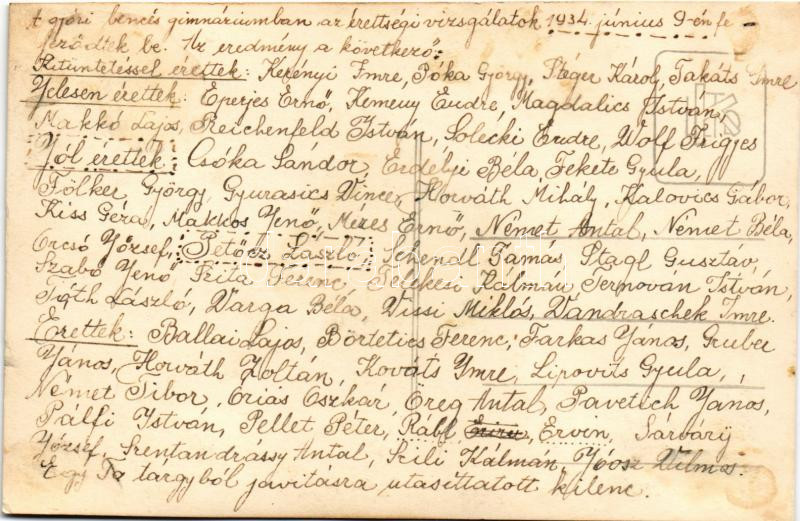 A győri bencés gimnáriumban az érettségi vizsgálatok 1934. június 9-én fe-
jeződtek be. Az eredmény a következő:
Kitüntetéssel érettek: Kerényi Imre, Póka György, Stéger Károl, Takáts Imre
Jelesen érettek: Eperjes Ernő, Kemeny Endre, Magdalics István,
Makkó Lajos, Reichenfeld István, Solecki Endre, Wolf Frigyes
Jól érettek: Csóka Sándor, Erdélyi Béla, Fekete Gyula,
Fölker György, Gyurasics Vince, Horváth Mihály, Kalovics Gábor,
Kiss Géza, Makkos Jenő, Mezes Ernő, Német Antal, Német Béla,
Orcsó József, Petőcz László, Schendl Tamás Stagl Gusztáv,
Szabó Jenő Ferenc, Telekesi Kálmán Ternován István,
Tóth László, Varga Béla, Vissi Miklós, Vandraschek Imre.
Érettek: Ballai Lajos, Börtetics Ferenc, Farkas János, Gruber
János, Horváth Zoltán, Kováts Imre, Lipovits Gyula,
Német Tibor, Órias Oszkár, Öreg Antal, Pavetich János,
Pálfi István, Pellet Péter, Rábl Ervin, Sárváry
József, Szentandrássy Antal, Szili Kálmán, Joósz Vilmos.
Egy tárgyból javitásra utasittatott kilenc.